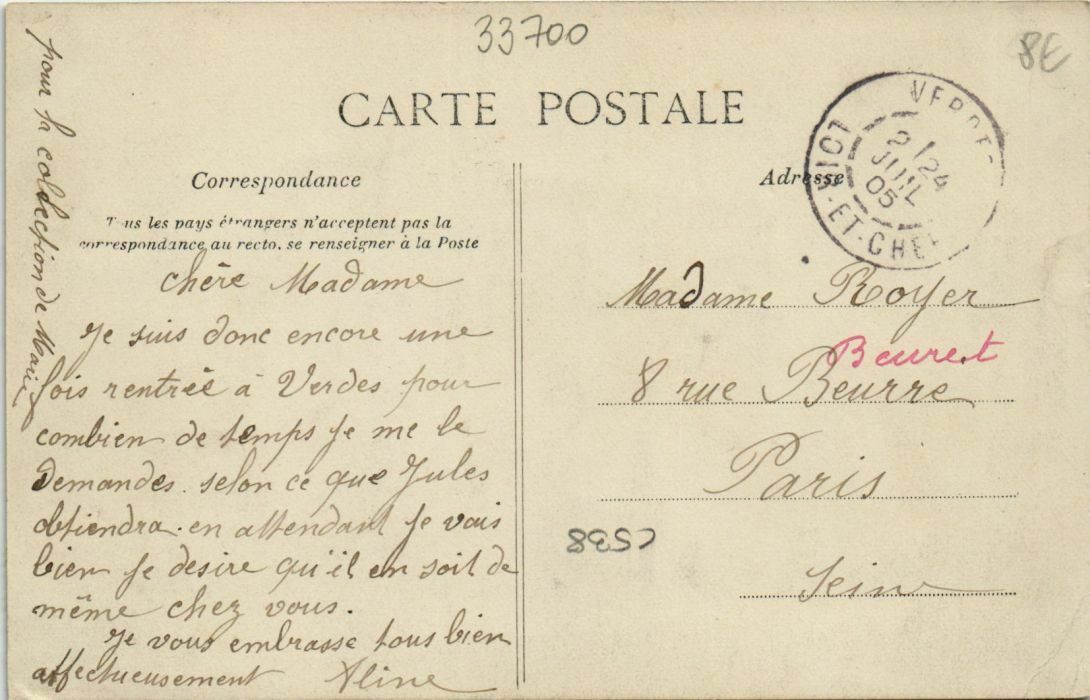 33700
8E
CARTE POSTALE
Correspondance
Tous les pays étrangers n'acceptent pas la
correspondance au recto, se renseigner à la Poste
pour la collection de Marie
chère Madame
Je suis donc encore une
fois rentrée à Verdes pour
combien de temps je me le
Demandes. selon ce que Jules
obtiendra. en attendant je vais
bien je desire qu'il en soit de
même chez vous.
Je vous embrasse tous bien
affectueusement Aline
Adresse
VERDES
2/24
JUIL
05
ET-CHER
Madame Royer
Beuret
8 rue Beurre
Paris
Seine